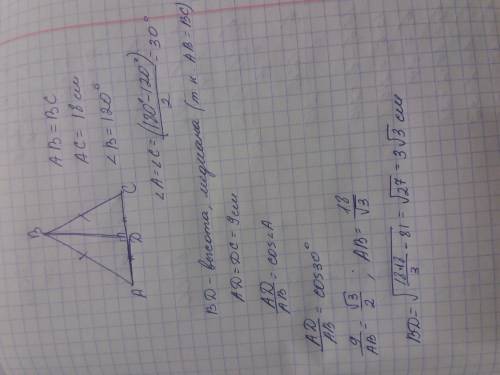 B
A
D
C
AB = BC
AC = 18 см
∠B = 120°
∠A = ∠C = (180° - 120°)/2 = 30°
BD - высота, медиана (т.к. AB = BC)
AD = DC = 9 см
AD/AB = cos∠A
AD/AB = cos30°
9/AB = √3/2 ; AB = 18/√3
BD = √(18·18/3 - 81) = √27 = 3√3 см